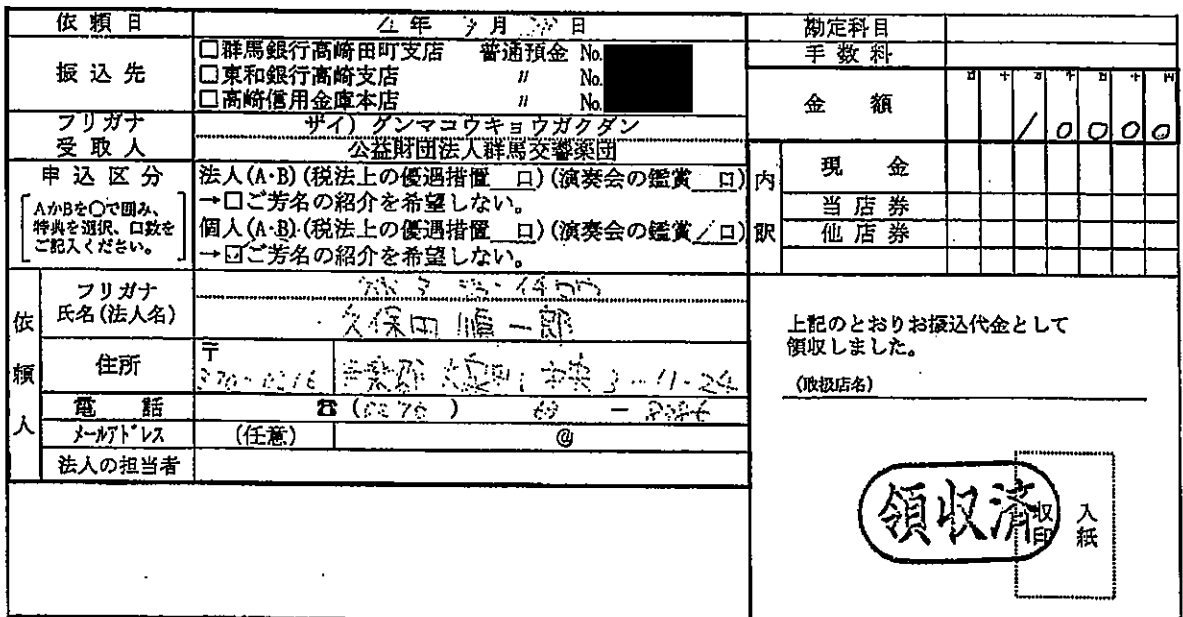 依頼日 年 月 日
振込先
□群馬銀行高崎田町支店 普通預金 No.
□東和銀行高崎支店 〃 No.
□高崎信用金庫本店 〃 No.
フリガナ ザイ) グンマコウキョウガクダン
受取人 公益財団法人群馬交響楽団
申込区分
AかBを○で囲み、
特典を選択、口数を
ご記入ください。
法人(A・B) (税法上の優遇措置 口) (演奏会の鑑賞 口)
→□ご芳名の紹介を希望しない。
個人(A・B) (税法上の優遇措置 口) (演奏会の鑑賞 / 口)
→☑ご芳名の紹介を希望しない。
依頼人
フリガナ
氏名(法人名) 久保田 順一郎
住所 〒 370- 3-11-24
電話 ☎ ( ) −
メールアドレス (任意) @
法人の担当者
勘定科目
手数料
金額 百 十 万 千 百 十 円
10000
内訳
現金
当店券
他店券
上記のとおりお振込代金として
領収しました。
(取扱店名)
領収済
収印
入紙